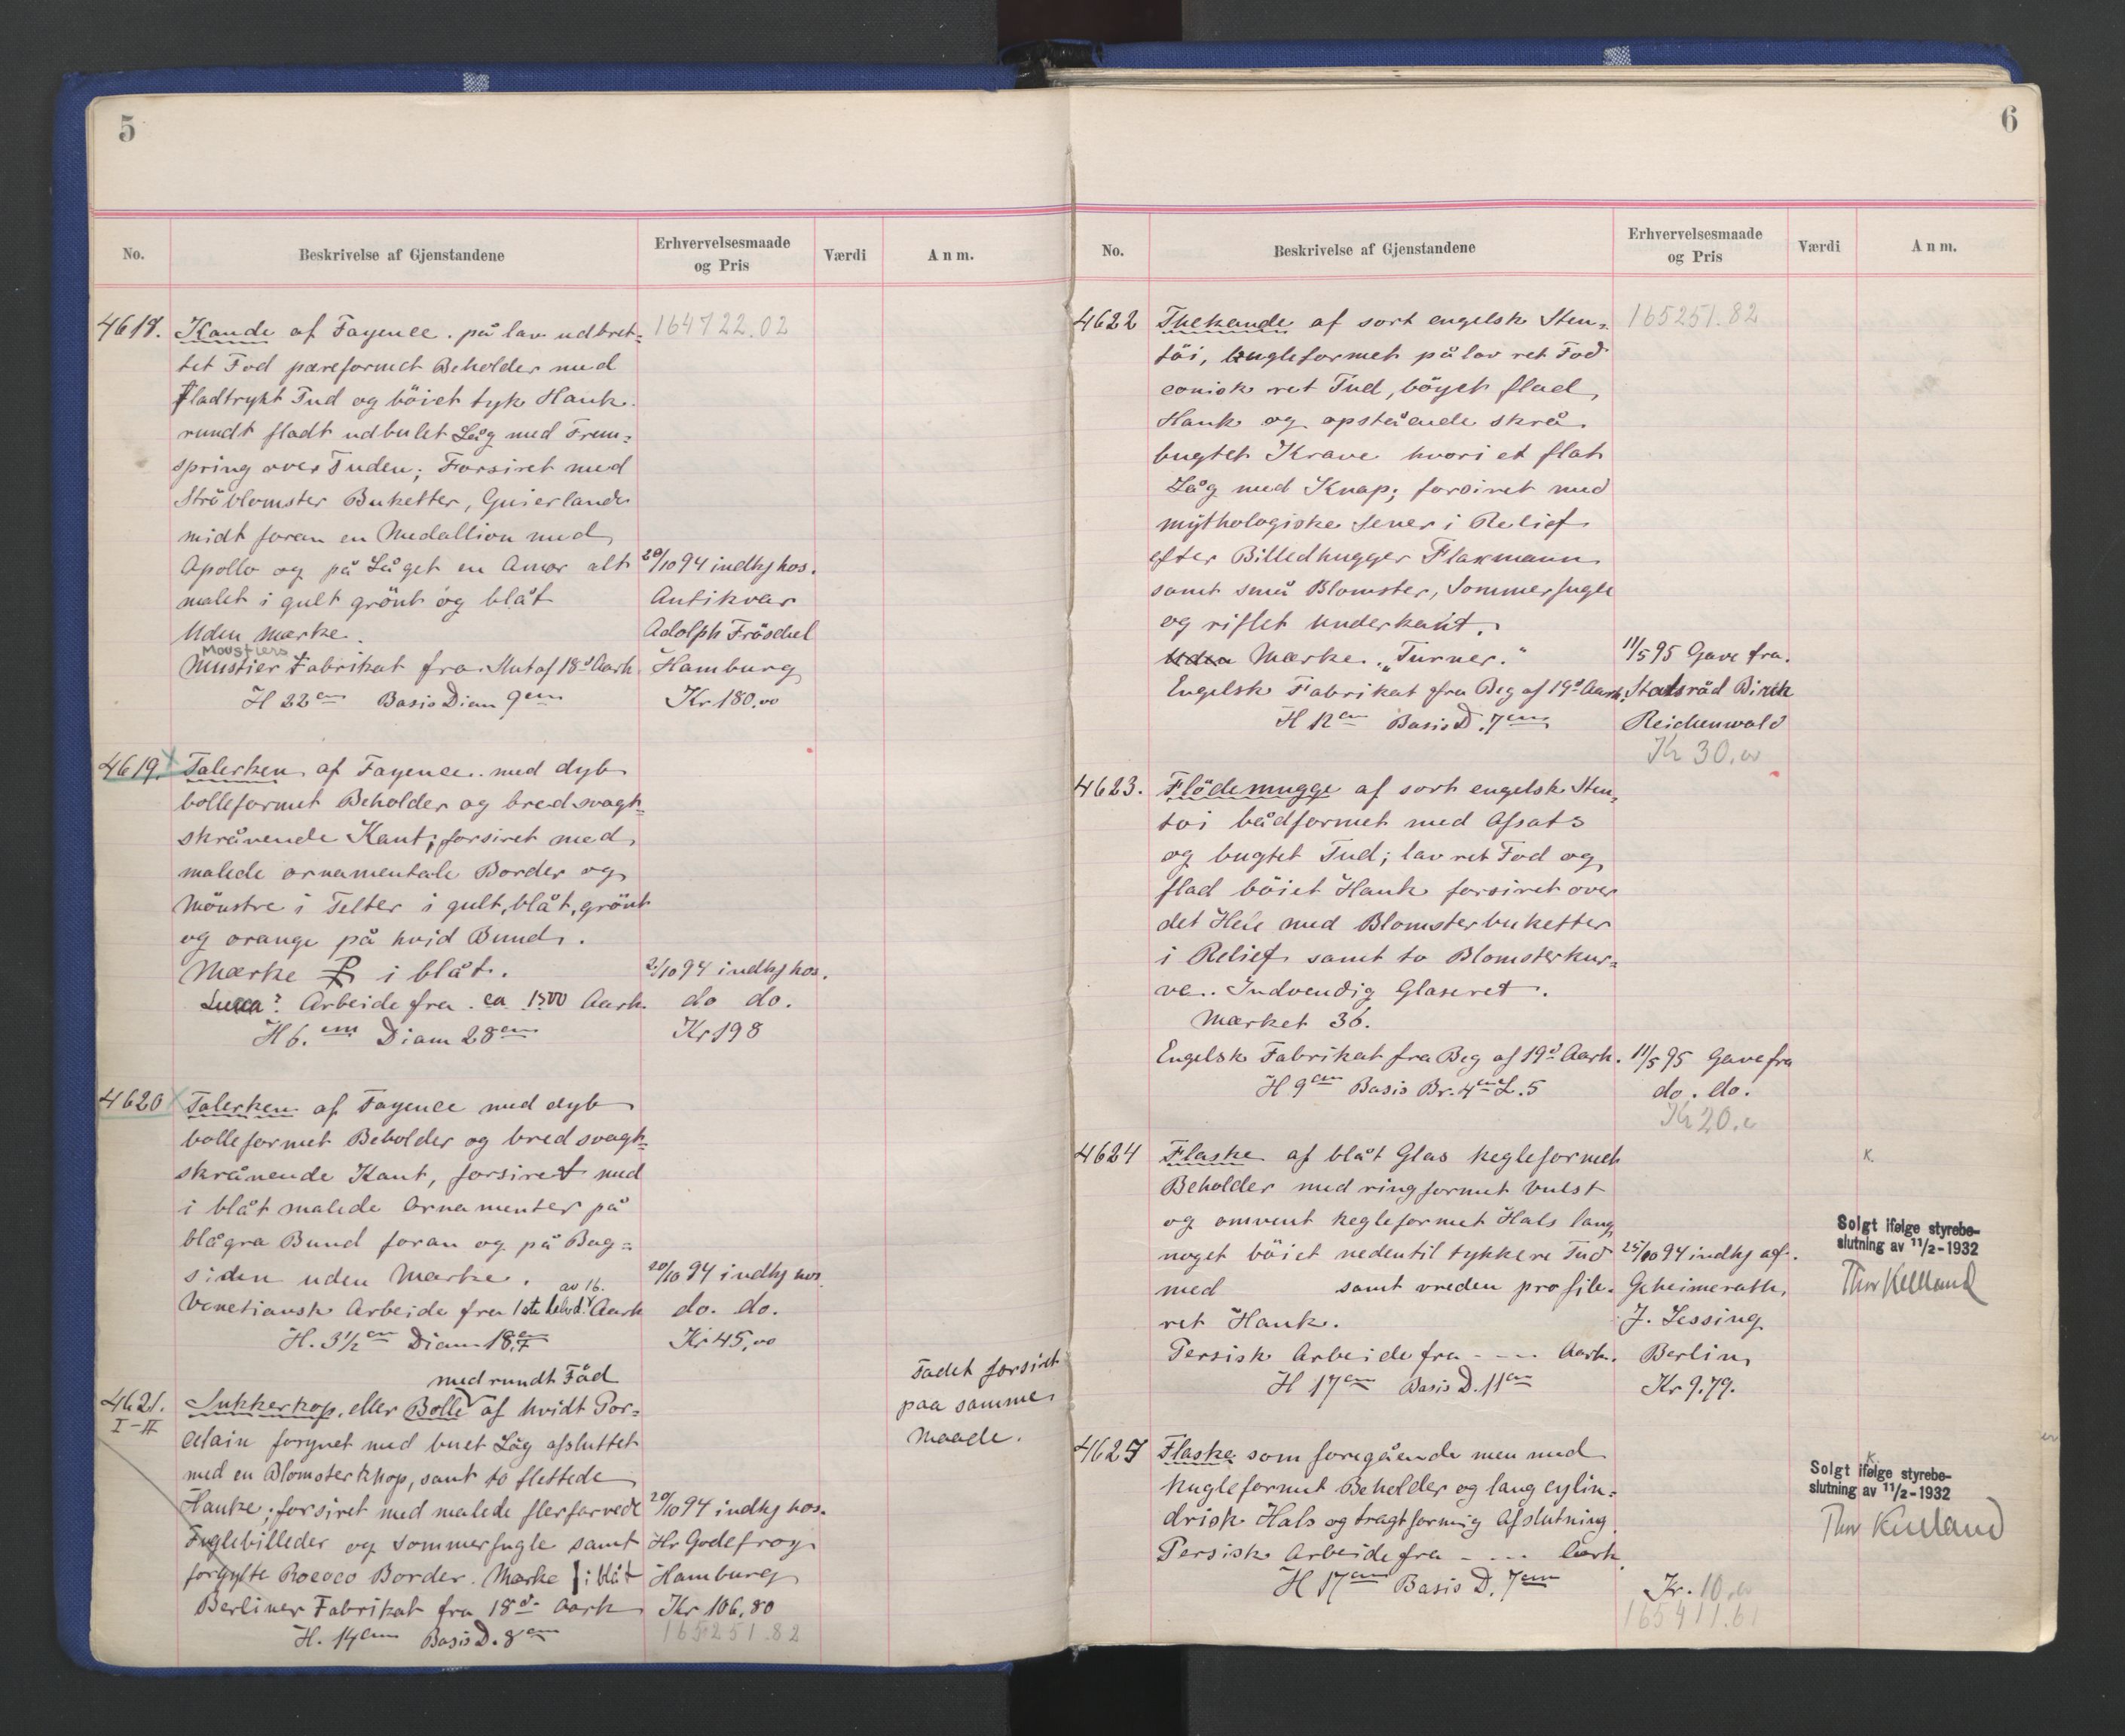 5
No.
Beskrivelse af Gjenstandene
Erhvervelsesmaade og Pris
Værdi
Anm.
4618. Kande af Fayence. på lav udbret= 164722.02
tet Fod pæreformet Beholder med
fladtrykt Tud og böiet tyk Hank.
rundt fladt udbulet Låg med Frem=
spring over Tuden; Forsiret med
Ströblomster Buketter, Guierlande
midt foran en Medallion med
Apollo og på Låget en Amor alt 20/10 94 indkj hos.
malet i gult grönt og blåt Antikvar
Uden Mærke. Adolph Fröschel
Moustiers
Mustier Fabrikat fra Slut af 18d Aarh Hamburg
H 22cm Basis Diam 9cm Kr 180.00
4619. Talerken af Fayence.. med dyb
bolleformet Beholder og bred svagt=
skrånende Kant; forsiret med
malede ornamentale Border og
Mönstre i Felter i gult, blåt, grönt
og orange på hvid Bund.
Mærke i blåt. 2/10 94 indkj hos.
Lucca? Arbeide fra ca 1500 Aarh. do do.
H 6.cm Diam 28cm Kr 198
4620 Talerken af Fayence med dyb
bolleformet Beholder og bred svagt=
skrånende Kant, forsiret med
i blåt malede Ornamenter på
blågra Bund foran og på Bag=
siden uden Mærke. 20/10 94 indkj hos.
av 16.
Venetiansk Arbeide fra 1ste halvd. Aarh do. do.
H. 3½cm Diam 18,7cm Kr 45,00
med rundt Fåd
4621. I-II Sukkerkop, eller Bolle af hvidt Por=
celain forsynet med buet Låg afsluttet
med en Blomsterknop, samt to flettede
Hanke; forsiret med malede flerfarvede 20/10 94 indkj hos.
Fuglebilleder og Sommerfugle samt Hr Godefroy
forgylte Rococo Border. Mærke i blåt Hamburg
Berliner Fabrikat fra 18d Aarh Kr 106,80
H. 14cm Basis D. 8cm 165251.82
Fadet forsiret
paa samme
Maade.
6
No.
Beskrivelse af Gjenstandene
Erhvervelsesmaade og Pris
Værdi
Anm.
4622 Thekande af sort engelsk Sten= 165251.82
töi, kugleformet på lav ret Fod
conisk ret Tud, böyet flad
Hank og opstående skrå
bugtet Krave hvori et flat
Låg med Knap; forsiret med
mythologiske Sener i Relief
efter Billedhugger Flaxmann
samt små Blomster, Sommerfugle
og riflet Underkant.
Uden Mærke. "Turner." 11/5 95 Gave fra.
Engelsk Fabrikat fra Beg af 19d Aarh. Statsråd Birch
H 12cm Basis D. 7cm Reichenwald
Kr 30.00
4623. Flödemugge af sort engelsk Sten=
toi bådformet med Afsats
og bugtet Tud; lav ret Fod og
flad böiet Hank forsiret over
det Hele med Blomsterbuketter
i Relief samt to Blomsterkur=
ve.. Indvendig Glaseret.
Mærket 36.
Engelsk Fabrikat fra Beg af 19d Aarh. 11/5 95 Gave fra
H 9cm Basis Br. 4cm L. 5 do. do.
Kr 20.
4624 Flaske af blåt Glas kegleformet K.
Beholder med ringformet Vulst
og omvent kegleformet Hals lang
noget böiet nedentil tykkere Tud 25/10 94 indkj af.
med samt vreden profile= Geheimerath
ret Hank. J. Lessing
Persisk Arbeide fra - - - Aarh. Berlin
H 17cm Basis D. 11cm Kr 9.79.
Solgt ifølge styrebe-
slutning av 11/2-1932
Thor Kielland
4625 Flaske som foregående men med
kugleformet Beholder og lang cylin=
drisk Hals og tragtformig Afslutning.
Persisk Arbeide fra - - - Aarh.
H 17cm Basis D. 7cm Kr. 10.00
165411.61
K.
Solgt ifølge styrebe-
slutning av 11/2-1932
Thor Kielland